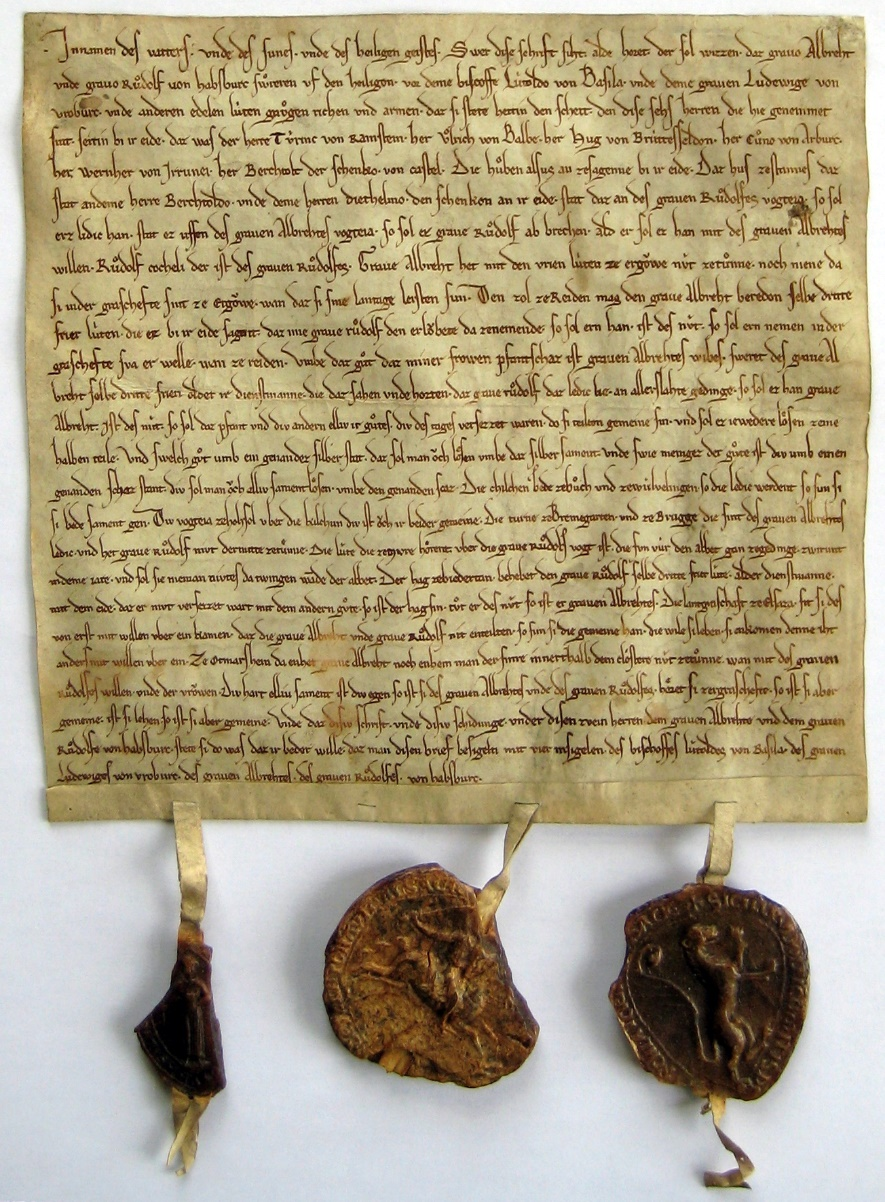 Innamen des vatters· vnde des sunes· vnde des heiligen geistes· Swer dise schrift siht· alde horet· der sol wizzen· daz gravo Albreht
vnde gravo Růdolf von habsburc swůreren vf den heiligon· vor deme bischoffe Lůtoldo von Basila· vnde deme graven Ludewige von
vroburc· vnde anderen edelen lůten gnůgen richen vnd armen· daz si stete hettin den scheit· den dise sehs herren die hie genemmet
sint· seitin bi ir eide· daz was der herre Tv́rinc von Ramstein· her Vͦlrich von Balbe· her Hug von Bruttesseldon· her Cůno von Arburc·
her Wernher von Iffental· her Berchtolt der schenko· von castel· Die hůben alsus an zesagenne bi ir eide· Daz hus zestannes daz
stat andeme herre Berchtoldo· vnde deme herren diethelmo· den schenkon an ir eide· stat daz an des graven Růdolfes vogteia· so sol
erz lidic han· stat ez uffen des graven Albrehtes vogteia· so sol ez grave Růdolf ab brechen· ald er sol ez han mit des graven Albrehtes
willen· Růdolf cocheli der ist des graven Růdolfes· Grave Albreht het mit den vrien lůten ze ergǒwe nv́t zetůnne· noch niene da
si inder graschefte sint ze Ergǒwe· wan daz si sine lantage leisten sun· Den zol zeReiden mag den grave Albreht beredon selbe dritte
frier lůten· die ez bi ir eide sagont· daz ime grave růdolf den erlǒbete da zenemende· so sol ern han· ist des nv́t· so sol ern nemen in der
graschefte swa er welle· wan ze reiden· vmbe daz gůt daz miner frowen pfantschaz ist graven Albrehtes wibes· sweret des grave Al
breht selbe dritte frien oldet ir dienstmanne· die daz sahen vnde horten· daz grave růdolf daz ledic lie· an allerslahte gedinge· so sol ez han grave
Albreht· ist des nv́t· so sol daz pfant vnd div andern ellav́ ir gůtes· div des tages versezzet waren· do si teilten gemeine sin· vnd sol ez iewedere lǒsen zeme
halben teile· Vnd swelch gůt umb ein genander silber stat· daz sol man ǒch lǒsen vmbe daz silber sament· vnde swie meniger der gůte ist div umb einen
genanden schaz stant· div sol man ǒch alliv sament lǒsen· vmbe den genanden scaz· Die chilchen bede zebůch vnd zewůlvelingen so die ledic werdent so sun si
si bede sament gen· Div vogteia zeholsol vber die kilchun div ist ǒch ir beider gemeine· Die turne zeBremegarten· vnd zeBrugge die sint des graven Albrehtes
ledic· vnd het grave Růdolf nivt dermitte zetůnne· Die lůte die zemure hǒrent· vber die grave Růdolf vogt ist· die sun vůr den abbet gan zegedinge· zwirunt
indeme iare· vnd sol sie nieman anders da twingen wande der abbet· Der hag zebiedertan· behebet den grave Růdolf selbe dritte frier lůte· alder dienstmanne·
mit dem eide· daz er nivt versezzet wart mit dem andern gůte· so ist der hag sin· tůt er des nv́t so ist er graven Albrehtes· Die lantgraschaft zeElsaza· sit si des
von erst mit willen vber ein kamen· daz die grave Albreht vnde grave Růdolf nit enteilten· so sun si die gemeine han· die wile si leben· si enkomen denne iht
anders mit willen vber ein· Ze Otmarshein da enhet grave Albreht noch enhein man der sinre innerthalb dem clǒstere nv́t zetůnne· wan mit des graven
Růdolfes willen· vnde der vrǒwen· Div hart elliu sament ist div eigen so ist si des graven Albrehtes vnde des graven Růdolfes· hǒret si zergraschefte· so ist si aber
gemeine· ist si lehen so ist si aber gemeine· Vnde daz disiv schrift· vnde disiv schidunge· vnder disen zwein herren dem graven Albrehte vnd dem graven
Růdolfe von habsburc· stete si do was daz ir beder wille· daz man disen brief besigelti mit vier insigelen· des bischoffes lůtoldes von Basila· des graven
Ludewiges von vroburc· des graven Albrehtes· des graven Růdolfes· von habsburc·